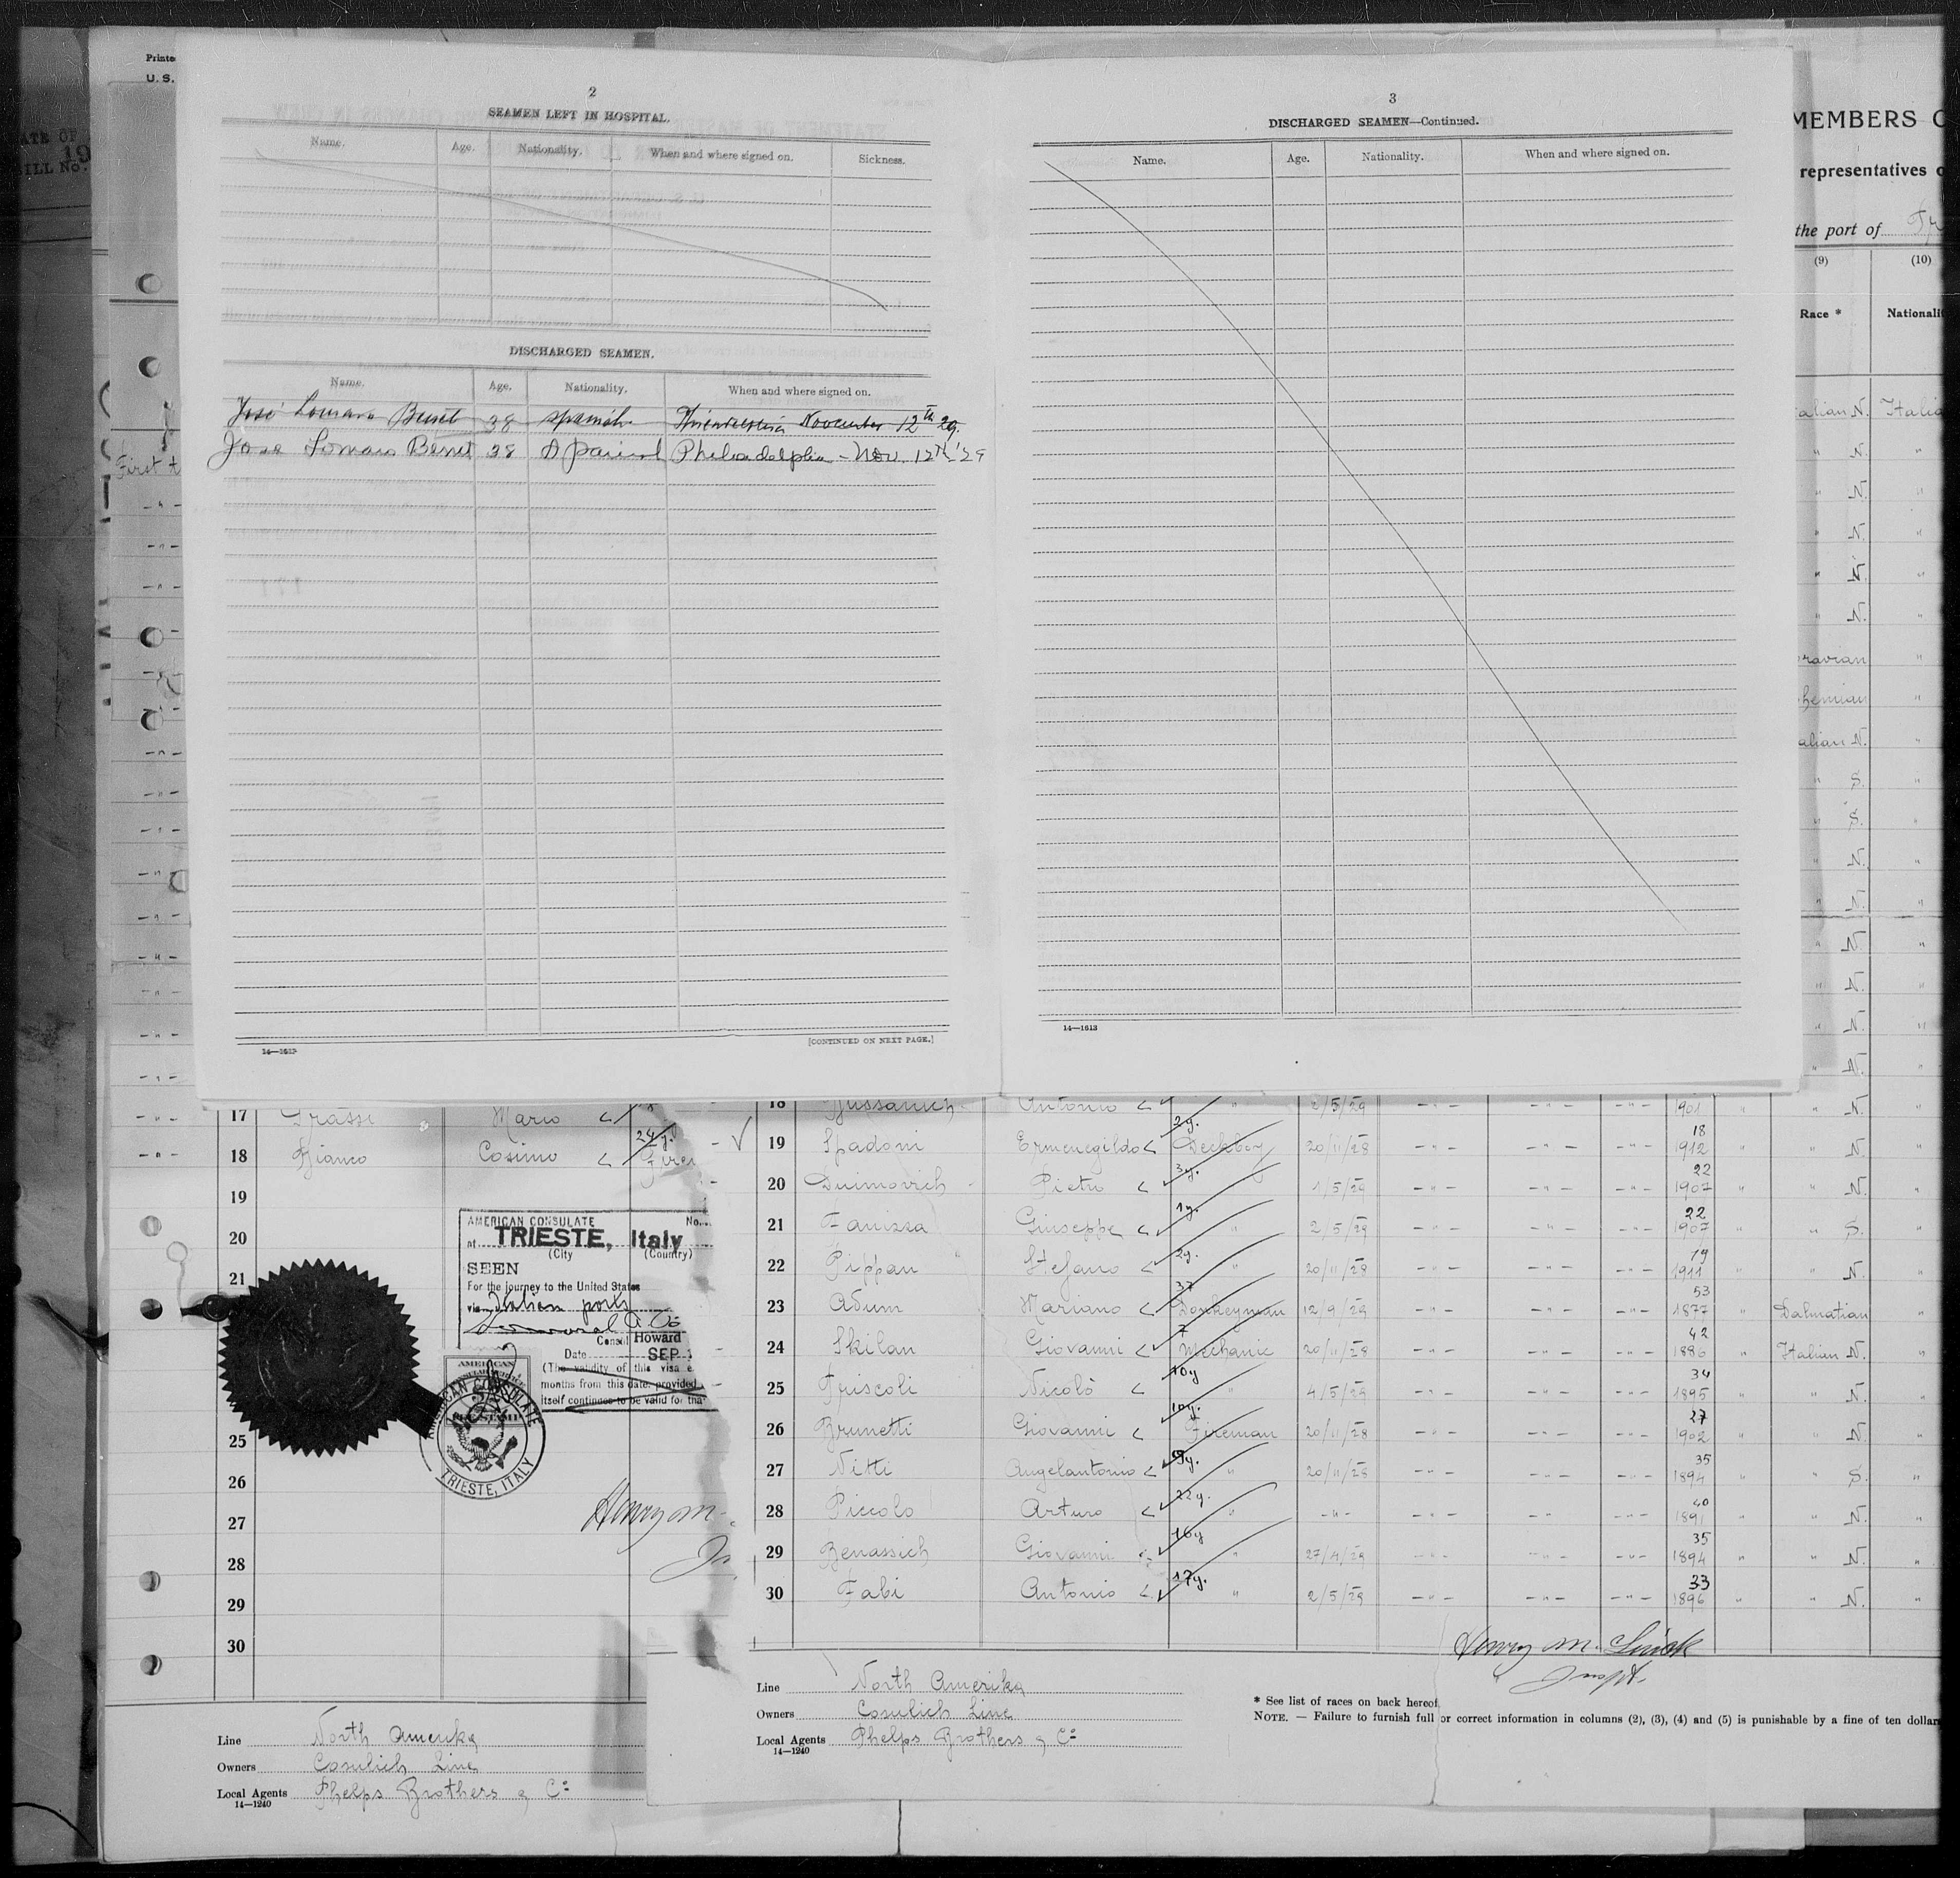 2
SEAMEN LEFT IN HOSPITAL.
Name. Age. Nationality. When and where signed on. Sickness.
DISCHARGED SEAMEN.
Name. Age. Nationality. When and where signed on.
José Lomaro Benet 38 Spanish November 12th 29.
Jose Lomaro Benet 38 Pheladelphia - Nov. 12th '29
14—1613
[CONTINUED ON NEXT PAGE.]
3
DISCHARGED SEAMEN—Continued.
Name. Age. Nationality. When and where signed on.
14—1613
Printe
U. S.
ATE OF
19
BILL No.
First
MEMBERS
representatives
the port of
(9) (10)
Race * Nationali
alian N. Italia
" N. "
" N. "
" N. "
" N. "
" N. "
ravian "
hemian "
alian N. "
" S. "
" S. "
" N. "
" N. "
" N. "
" N. "
" N. "
" N. "
17 Grassi Mario
18 Bianco Cosimo 24 y.
19
20
21
25
26
27
28
29
30
AMERICAN CONSULATE No.
at TRIESTE, Italy
(City (Country)
SEEN
For the journey to the United States
via Italian ports
Consul Howard
Date SEP
(The validity of this visa e
months from this date, provided
itself continues to be valid for tha
AMERICAN CONSULATE
TRIESTE, ITALY
Henry M.
Line North Amerika
Owners Cosulich Line
Local Agents Phelps Brothers & Co
14—1240
18 Antonio " 2/5/29 1901 " N.
19 Spadoni Ermenegildo 2y. Deckboy 20/11/28 18 1912 " N.
20 Duimovich Pietro 3y. 1/5/29 22 1907 " N.
21 Fanizza Giuseppe 1y. " 2/5/29 22 1907 " S.
22 Pippan Stefano 2y. " 20/11/28 19 1911 " N.
23 Adum Mariano 37 Donkeyman 12/9/29 53 1877 " Dalmatian
24 Skilan Giovanni 7 Mechanic 20/11/28 42 1886 " Italian N.
25 Friscoli Nicolò 10y " 4/5/29 34 1895 " N.
26 Brunetti Giovanni 10y. Fireman 20/11/28 27 1902 " N.
27 Nitti Angelantonio 9y. " 20/11/28 35 1894 " S.
28 Piccolo Arturo 22y. " -"- 40 1891 " N.
29 Benassich Giovanni 16y " 27/4/29 35 1894 " N.
30 Fabi Antonio 17y. " 2/5/29 33 1896 " N.
Henry M.
Inspt.
Line North Amerika
Owners Cosulich Line
Local Agents Phelps Brothers & Co
14—1240
* See list of races on back hereof
NOTE. — Failure to furnish full or correct information in columns (2), (3), (4) and (5) is punishable by a fine of ten dollar